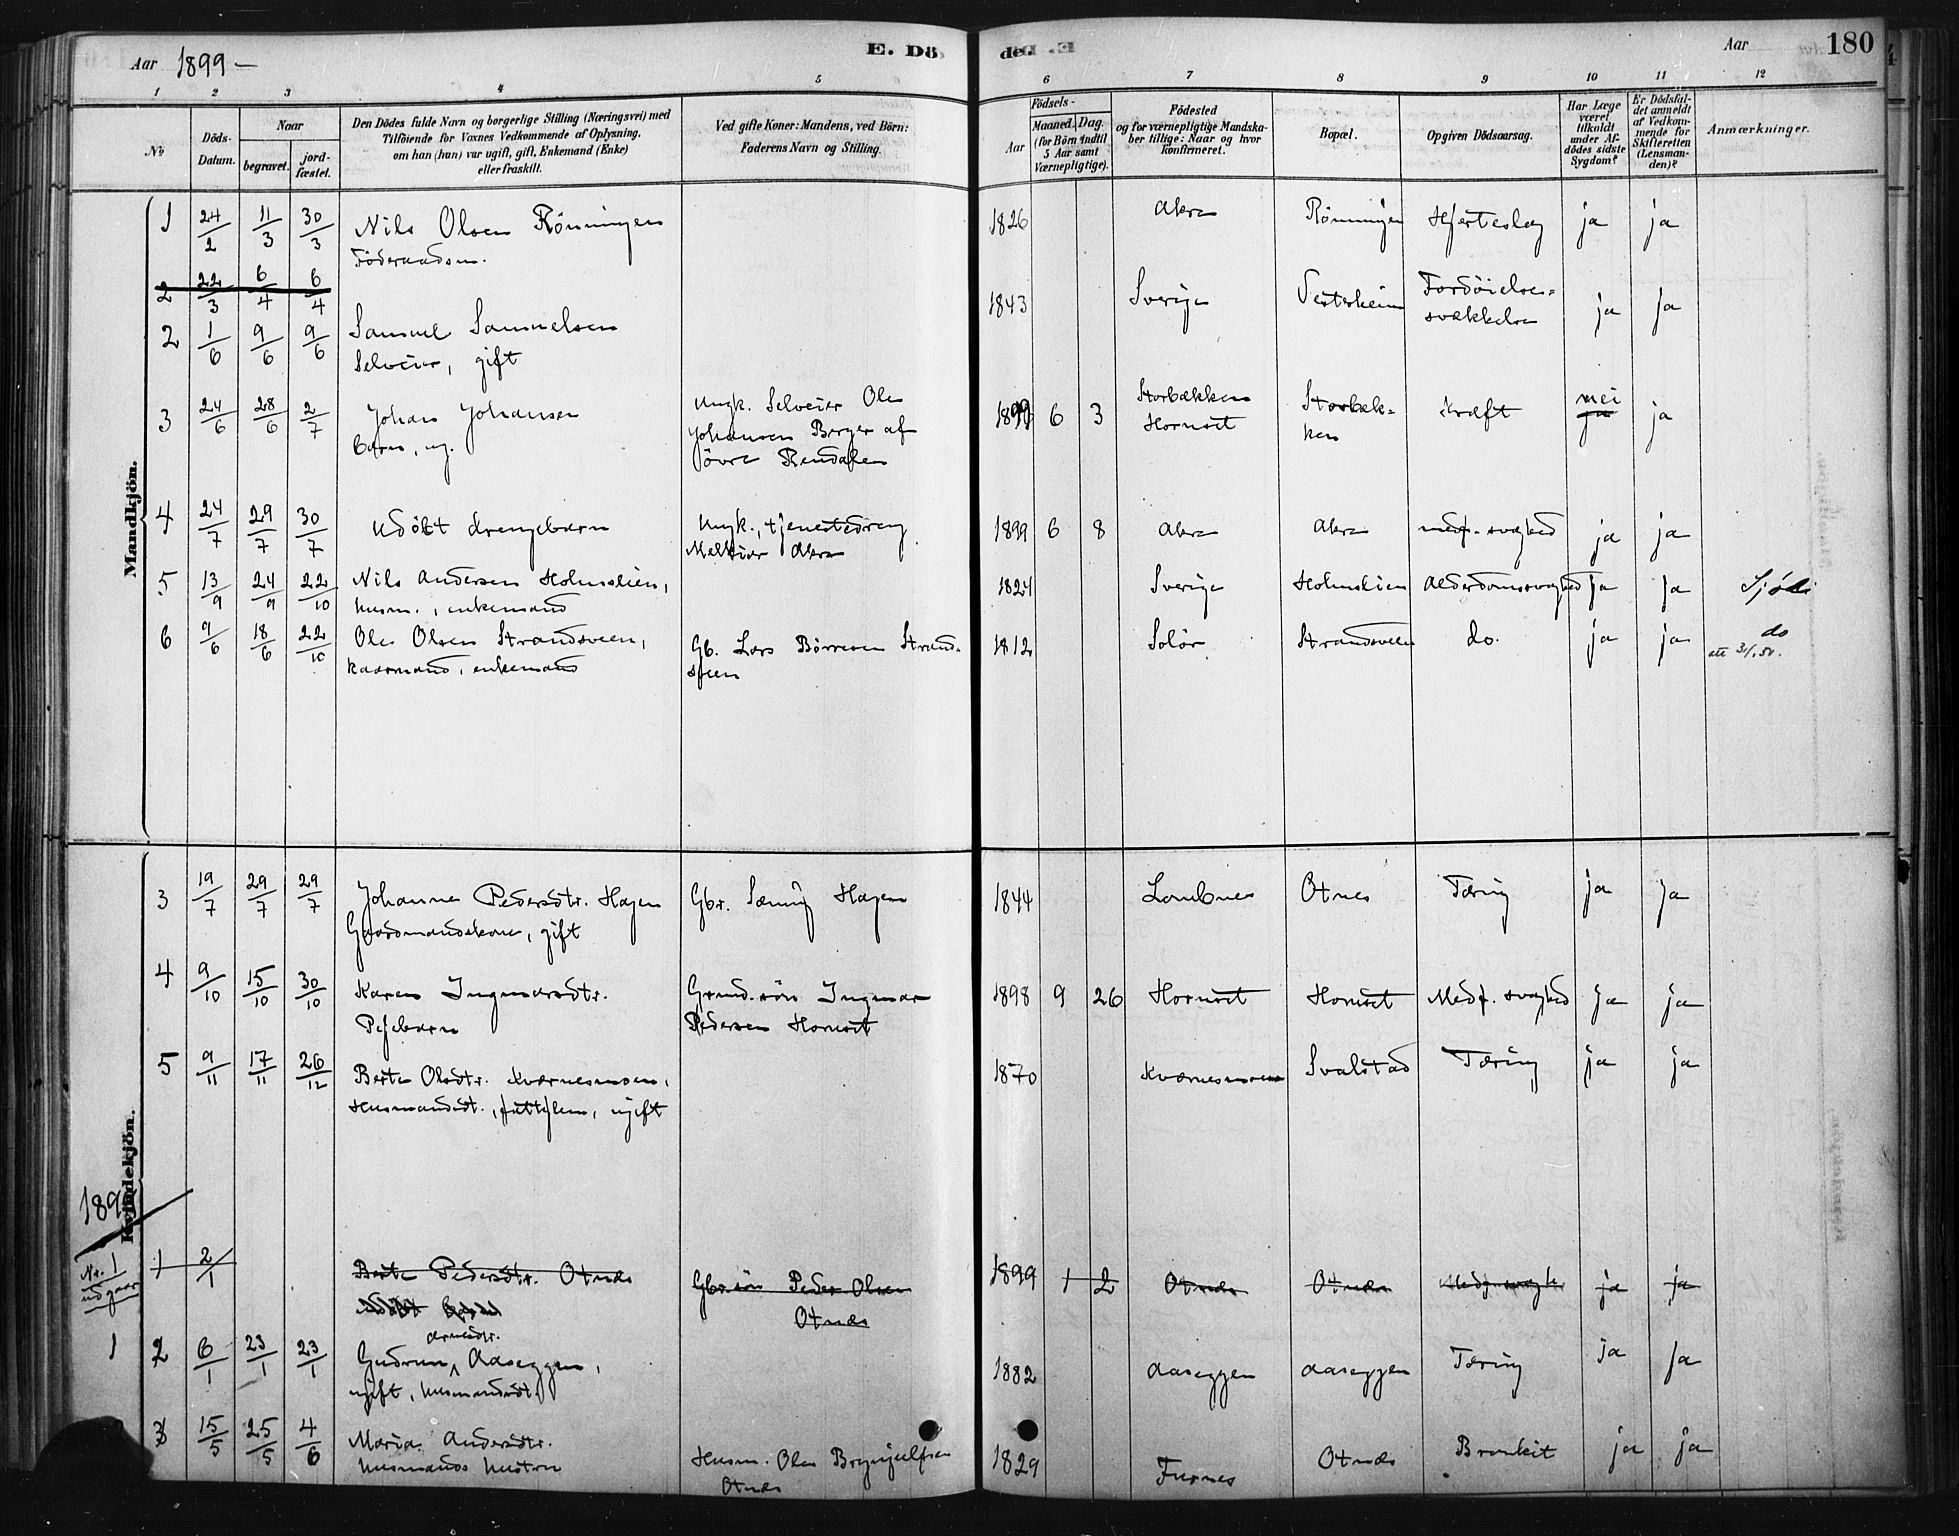 Aar 1899 –
E. Dö
de.
Aar
180
1 2 3 4 5
6 7 8 9 10 11 12
No
Döds-
Datum.
Naar
begravet.
jord-
fæstet.
Den Dödes fulde Navn og borgerlige Stilling (Næringsvei) med
Tilföiende for Voxnes Vedkommende af Oplysning,
om han (hun) var ugift, gift, Enkemand (Enke)
eller fraskilt.
Ved gifte Koner: Mandens, ved Börn:
Faderens Navn og Stilling.
Födsels-
Aar
Maaned. Dag.
(for Börn indtil
5 Aar samt
Værnepligtige).
Födested
og for værnepligtige Mandska-
ber tillige: Naar og hvor
konfirmeret.
Bopæl.
Opgiven Dödsaarsag.
Har Læge
været
tilkaldt
under Af-
dödes sidste
Sygdom?
Er Dödsfal-
det anmeldt
af Vedkom-
mende for
Skifteretten
(Lensman-
den)?
Anmærkninger.
Mandkjön.
1 24/2 11/3 30/3 Nils Olsen Rönningen 1826 Akre Rönningen Hjerteslag ja ja
Föderaadsm.
2 22/3 6/4 6/4
2 1/6 9/6 9/6 Samuel Samuelsen 1843 Sverige Vesterheim Fordöielses- ja ja
Selveier, gift svækkelse
3 24/6 28/6 2/7 Johan Johansen Ungk. Selveier Ole 1899 6 3 Storbækken Storbæk- Kræft nei ja ja
barn, ug. Johansen Berger af Hornset ken
övre Rendalen
4 24/7 29/7 30/7 Udöbt drengebarn Ungk., tjenestedreng 1899 6 8 Akre Akre medf. svaghed ja ja
Melkior Akre
5 13/9 24/9 22/10 Nils Andersen Holmslien, 1824 Sverige Holmslien Alderdomssvaghed ja ja Sjöli
husm., enkemand
6 9/6 18/6 22/10 Ole Olsen Strandsveen, Gb. Lars Börresen Strand- 1812 Solör Strandsveen do. ja ja do
kaarmand, enkemand sveen
Kvindekjön.
3 19/7 29/7 29/7 Johanne Pedersdtr. Hagen Gbr. Hagen 1844 Lombnes Otnes Tæring ja ja
Gaardmandskone, gift
4 9/10 15/10 30/10 Karen Ingmarsdtr. Grund.sön Ingmar 1898 9 26 Hornset Hornset Medf. svaghed ja ja
Pigebarn Pedersen Hornset
5 9/11 17/11 26/12 Berte Olsdtr. Kværnesmoen, 1870 Kværnesmoen Svalstad Tæring ja ja
Husmandsdt., fattiglem, ugift
Nr. 1
udgaar
1 2/1 Berte Pedersdtr. Otnes Gbr.sön Peder Olsen 1899 1 2 Otnes Otnes Medf. svagh. ja ja
Otnes
1 2 6/1 23/1 23/1 Gudrun Arnesdtr. Aaseggen, 1882 Aaseggen Aaseggen Tæring ja ja
ugift, husmandsdt.
15/5 25/5 4/6 Maria Andersdtr. Husm. Ole Brynjulfsen 1829 Furnes Otnes Bronkit ja ja
husmands hustru Otnes